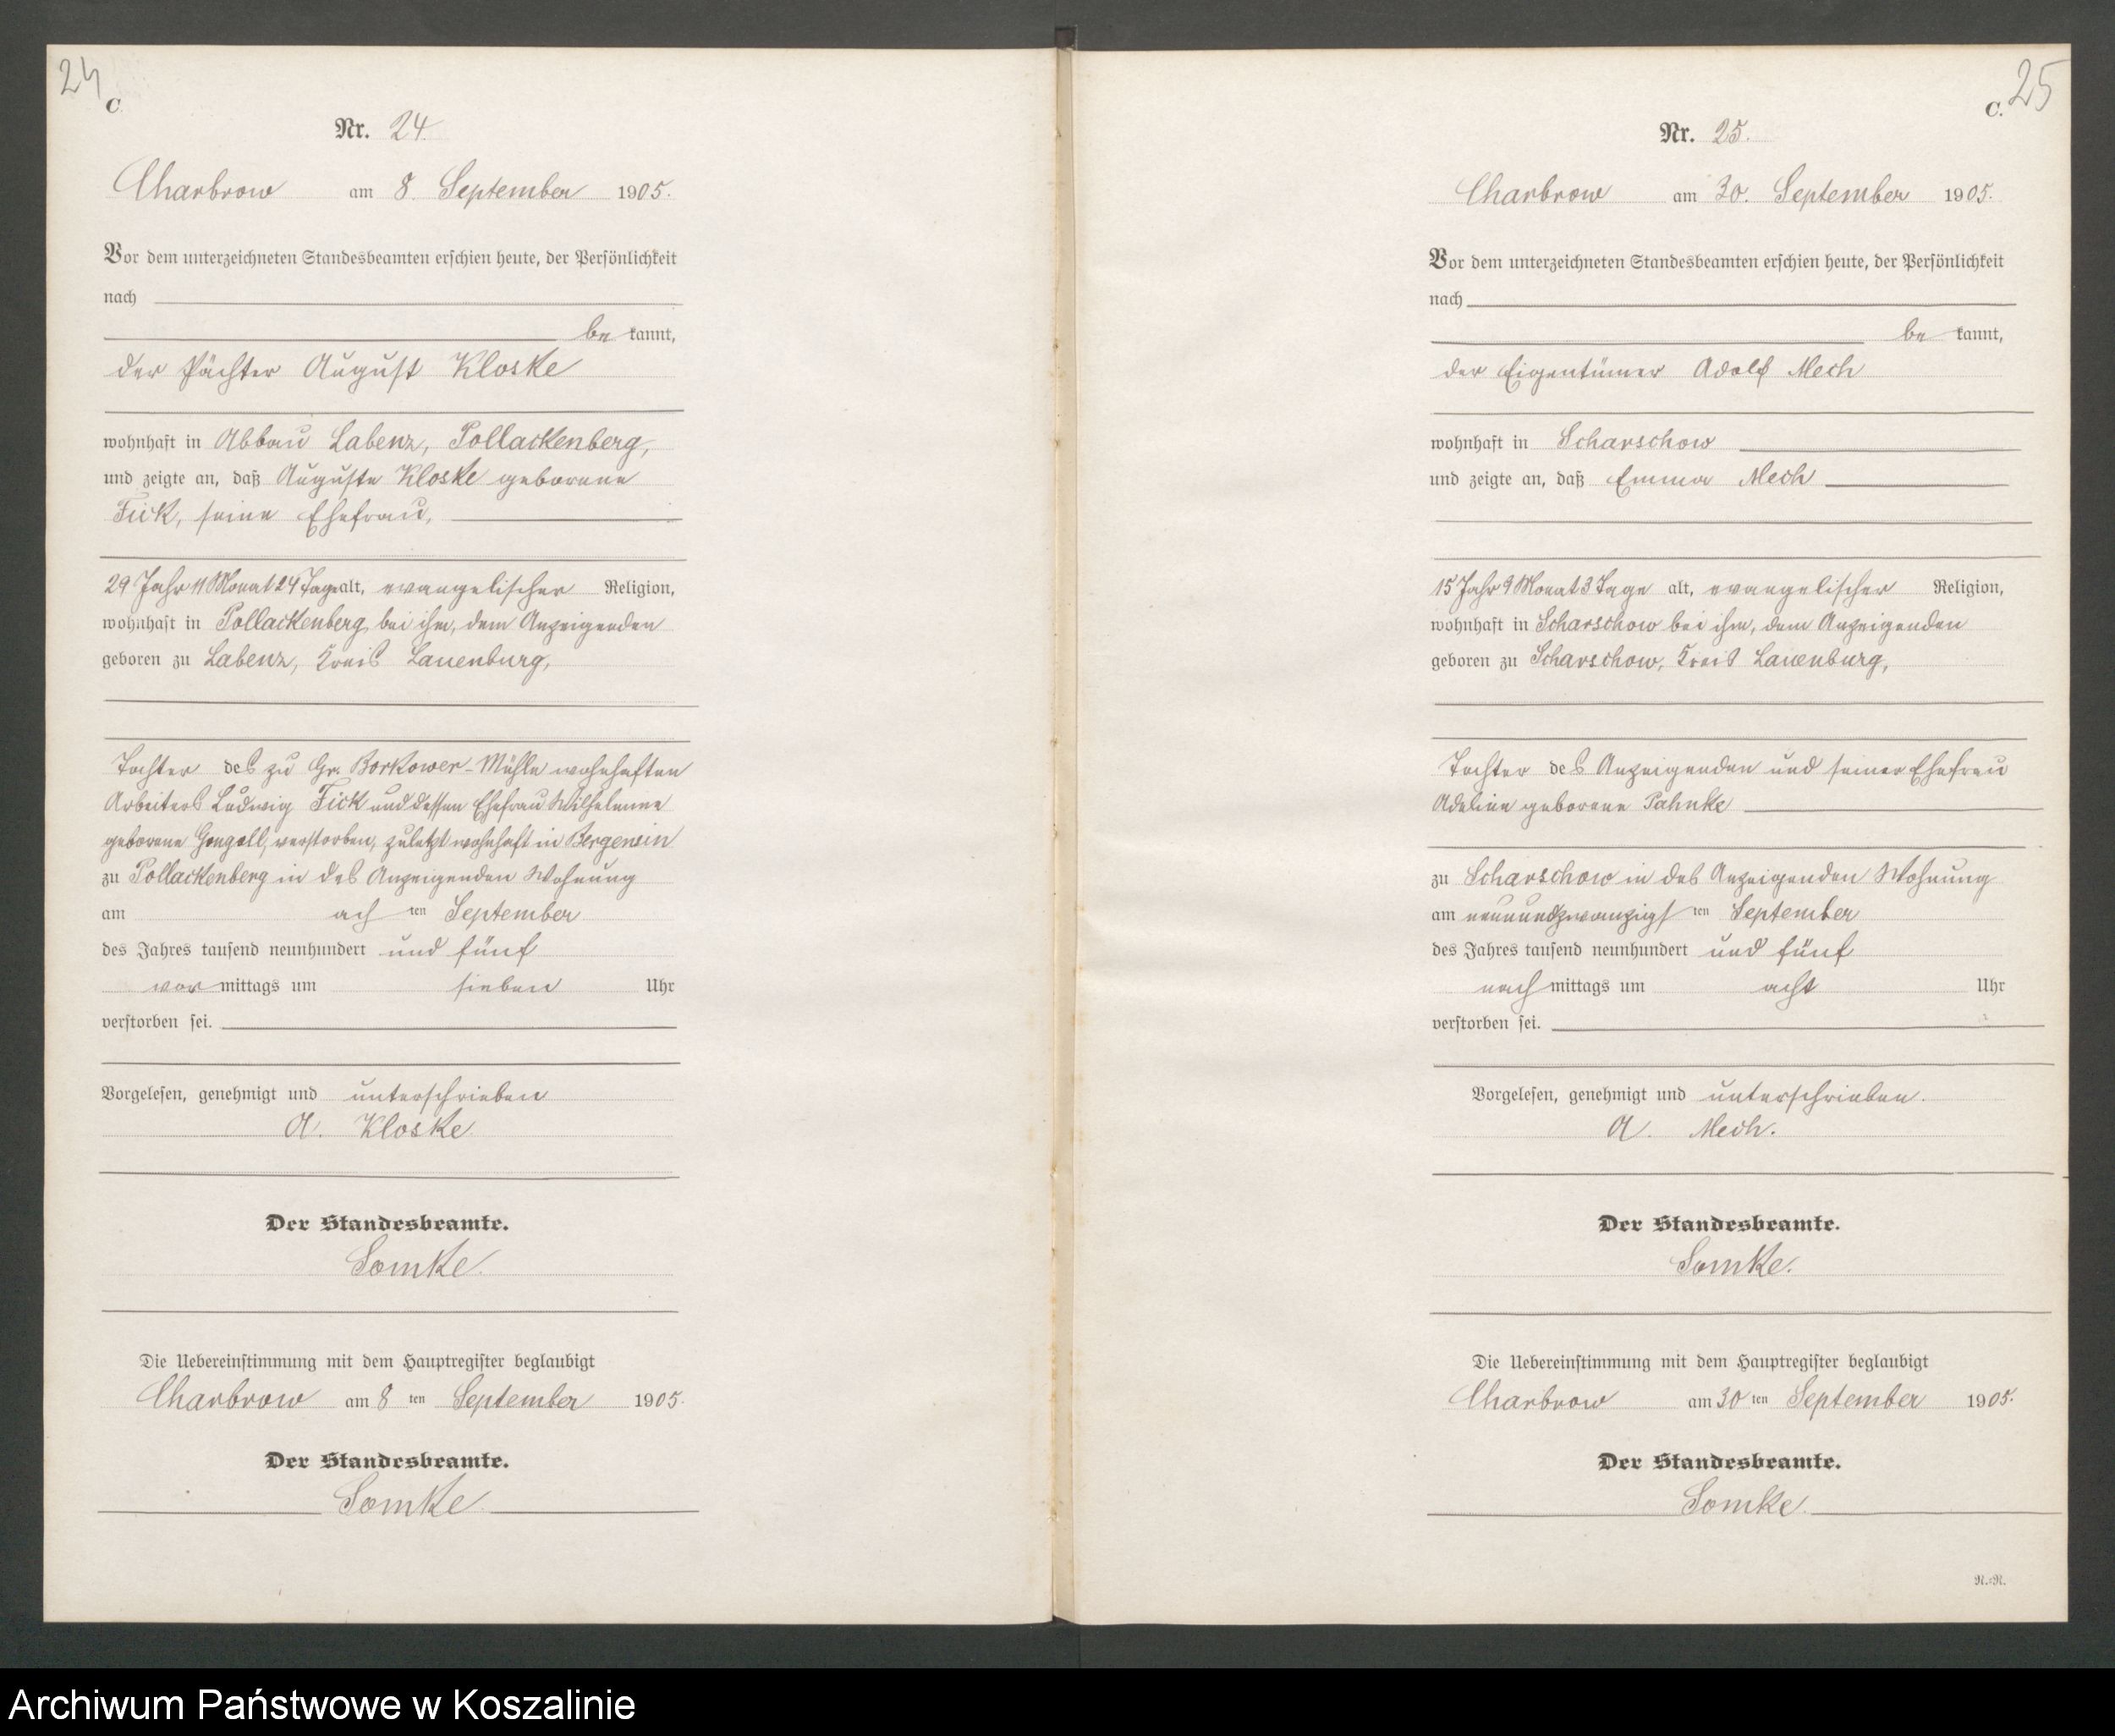 24
C
Nr. 24.
Charbrow am 8. September 1905.
Vor dem unterzeichneten Standesbeamten erschien heute, der Persönlichkeit
nach
be kannt,
der Pächter August Kloske
wohnhaft in Abbau Labenz, Pollackenberg,
und zeigte an, daß Auguste Kloske geborene
Fick, seine Ehefrau,
29 Jahr 11 Monat 24 Tage alt, evangelischer Religion,
wohnhaft in Pollackenberg bei ihm, dem Anzeigenden
geboren zu Labenz, Kreis Lauenburg,
Tochter des zu Gr. Borkower-Mühle wohnhaften
Arbeiters Ludwig Fick und dessen Ehefrau Wilhelmine
geborene Gongoll, verstorben, zuletzt wohnhaft in Bergensin
zu Pollackenberg in des Anzeigenden Wohnung
am ach ten September
des Jahres tausend neunhundert und fünf
vor mittags um sieben Uhr
verstorben sei.
Vorgelesen, genehmigt und unterschrieben
A. Kloske.
Der Standesbeamte.
Somke.
Die Uebereinstimmung mit dem Hauptregister beglaubigt
Charbrow am 8 ten September 1905.
Der Standesbeamte.
Somke.
25
C.
Nr. 25.
Charbrow am 30. September 1905.
Vor dem unterzeichneten Standesbeamten erschien heute, der Persönlichkeit
nach
be kannt,
der Eigentümer Adolf Mech
wohnhaft in Scharschow
und zeigte an, daß Emma Mech
15 Jahr 9 Monat 3 Tage alt, evangelischer Religion,
wohnhaft in Scharschow bei ihm, dem Anzeigenden
geboren zu Scharschow, Kreis Lauenburg,
Tochter des Anzeigenden und seiner Ehefrau
Adeline geborene Pahnke
zu Scharschow in des Anzeigenden Wohnung
am neunundzwanzigs ten September
des Jahres tausend neunhundert und fünf
nach mittags um acht Uhr
verstorben sei.
Vorgelesen, genehmigt und unterschrieben.
A. Mech.
Der Standesbeamte.
Somke.
Die Uebereinstimmung mit dem Hauptregister beglaubigt
Charbrow am 30 ten September 1905.
Der Standesbeamte.
Somke.
N.=N.
Archiwum Państwowe w Koszalinie